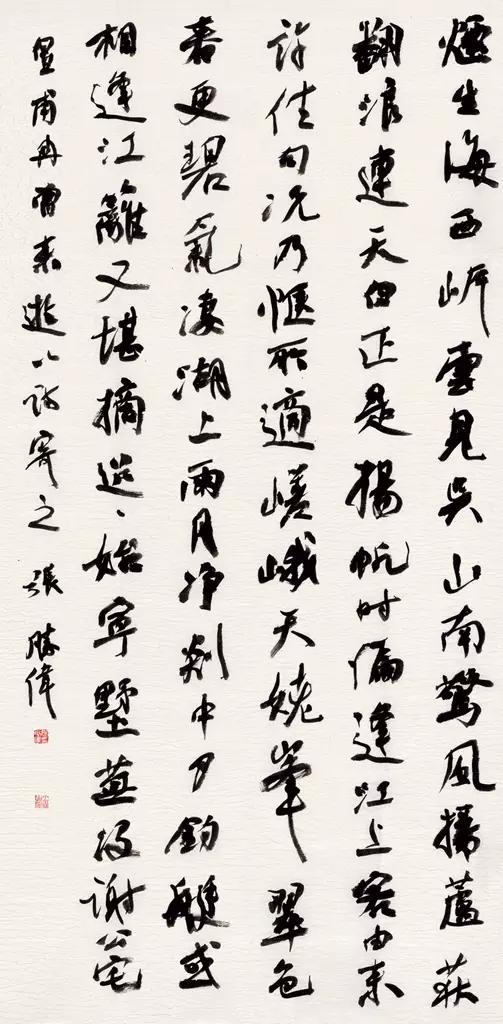 煙生海西岸雲見吳山南驚風掃蘆荻
翻浪連天白正是揚帆時偏逢江上客由來
許佳句況乃愜所適嵯峨天姥峯翠色
春更碧氣淒湖上雨月净剡中夕釣艇或
相逢江蘺又堪摘迢迢始寧墅蕪没謝公宅
皇甫冉曾來遊以詩寄之 張勝偉